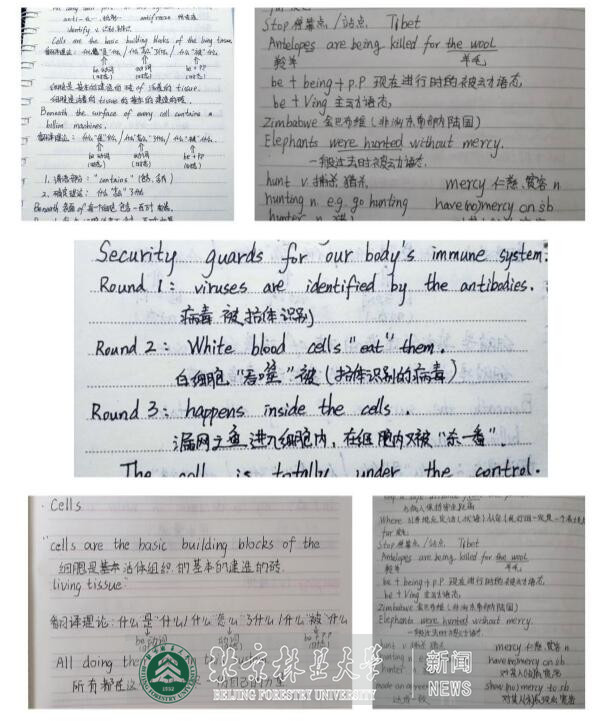 anti-
antifreeze
identify v.识别,辨认
Cells are the basic building blocks of the living tissue.
翻译理论: 什么"是"什么/什么"怎么"了什么/什么"被"什么
be动词 动词 be+PP
细胞是基本的建造的砖 of 活着的 tissue.
细胞是活着的 tissue 的基本的建造的砖.
Beneath the surface of every cell contains a
billion machines.
be动词 动词 be+PP
1. 谓语部分: "contains"
2. 确定理论: 什么"怎么"了什么
Stop 停靠点/站点 Tibet
Antelopes are being killed for the wool
羚羊 羊毛
be + being + p.p 现在进行时的被动语态
be + Ving 主动语态
Zimbabwe 金巴布维(非洲东南部内陆国)
Elephants were hunted without mercy.
一般过去时被动语态.
hunt v. 捕杀 猎杀 mercy 仁慈,宽容 n
hunting n. e.g. go hunting have(no)mercy on sb
hunter n.
Security guards for our body's immune system.
Round 1: viruses are identified by the antibodies.
病毒 被 抗体 识别
Round 2: White blood cells "eat" them.
白细胞 "吞噬" 被(抗体识别的病毒)
Round 3: happens inside the cells.
漏网之鱼 进入细胞内, 在细胞内又被"杀一番"
The cell is totally under the control.
· Cells
"cells are the basic building blocks of the
细胞是基本活体组织 的基本的建造的砖
living tissue"
翻译理论: 什么"是"什么/什么"怎么"了什么/什么"被"什么
be动词 动词 be PP
All doing the
所有都在这
与病人保持安全距离
for
Stop 停靠点/站点 Tibet
Antelopes are being killed for the wool
羚羊 羊毛
be + being + p.p 现在进行时的被动语态
be + Ving 主动语态
Zimbabwe 金巴布维(非洲东南部内陆国)
Elephants were hunted without mercy.
一般过去时被动语态.
hunt v. 捕杀 猎杀 mercy 仁慈,宽容 n
hunting have(no)mercy on sb
hunter 对某人(不)仁慈宽容
made an agreement show(no)mercy to sb
对某人(不)表现宽容
北京林业大学 新闻
BEIJING FORESTRY UNIVERSITY NEWS